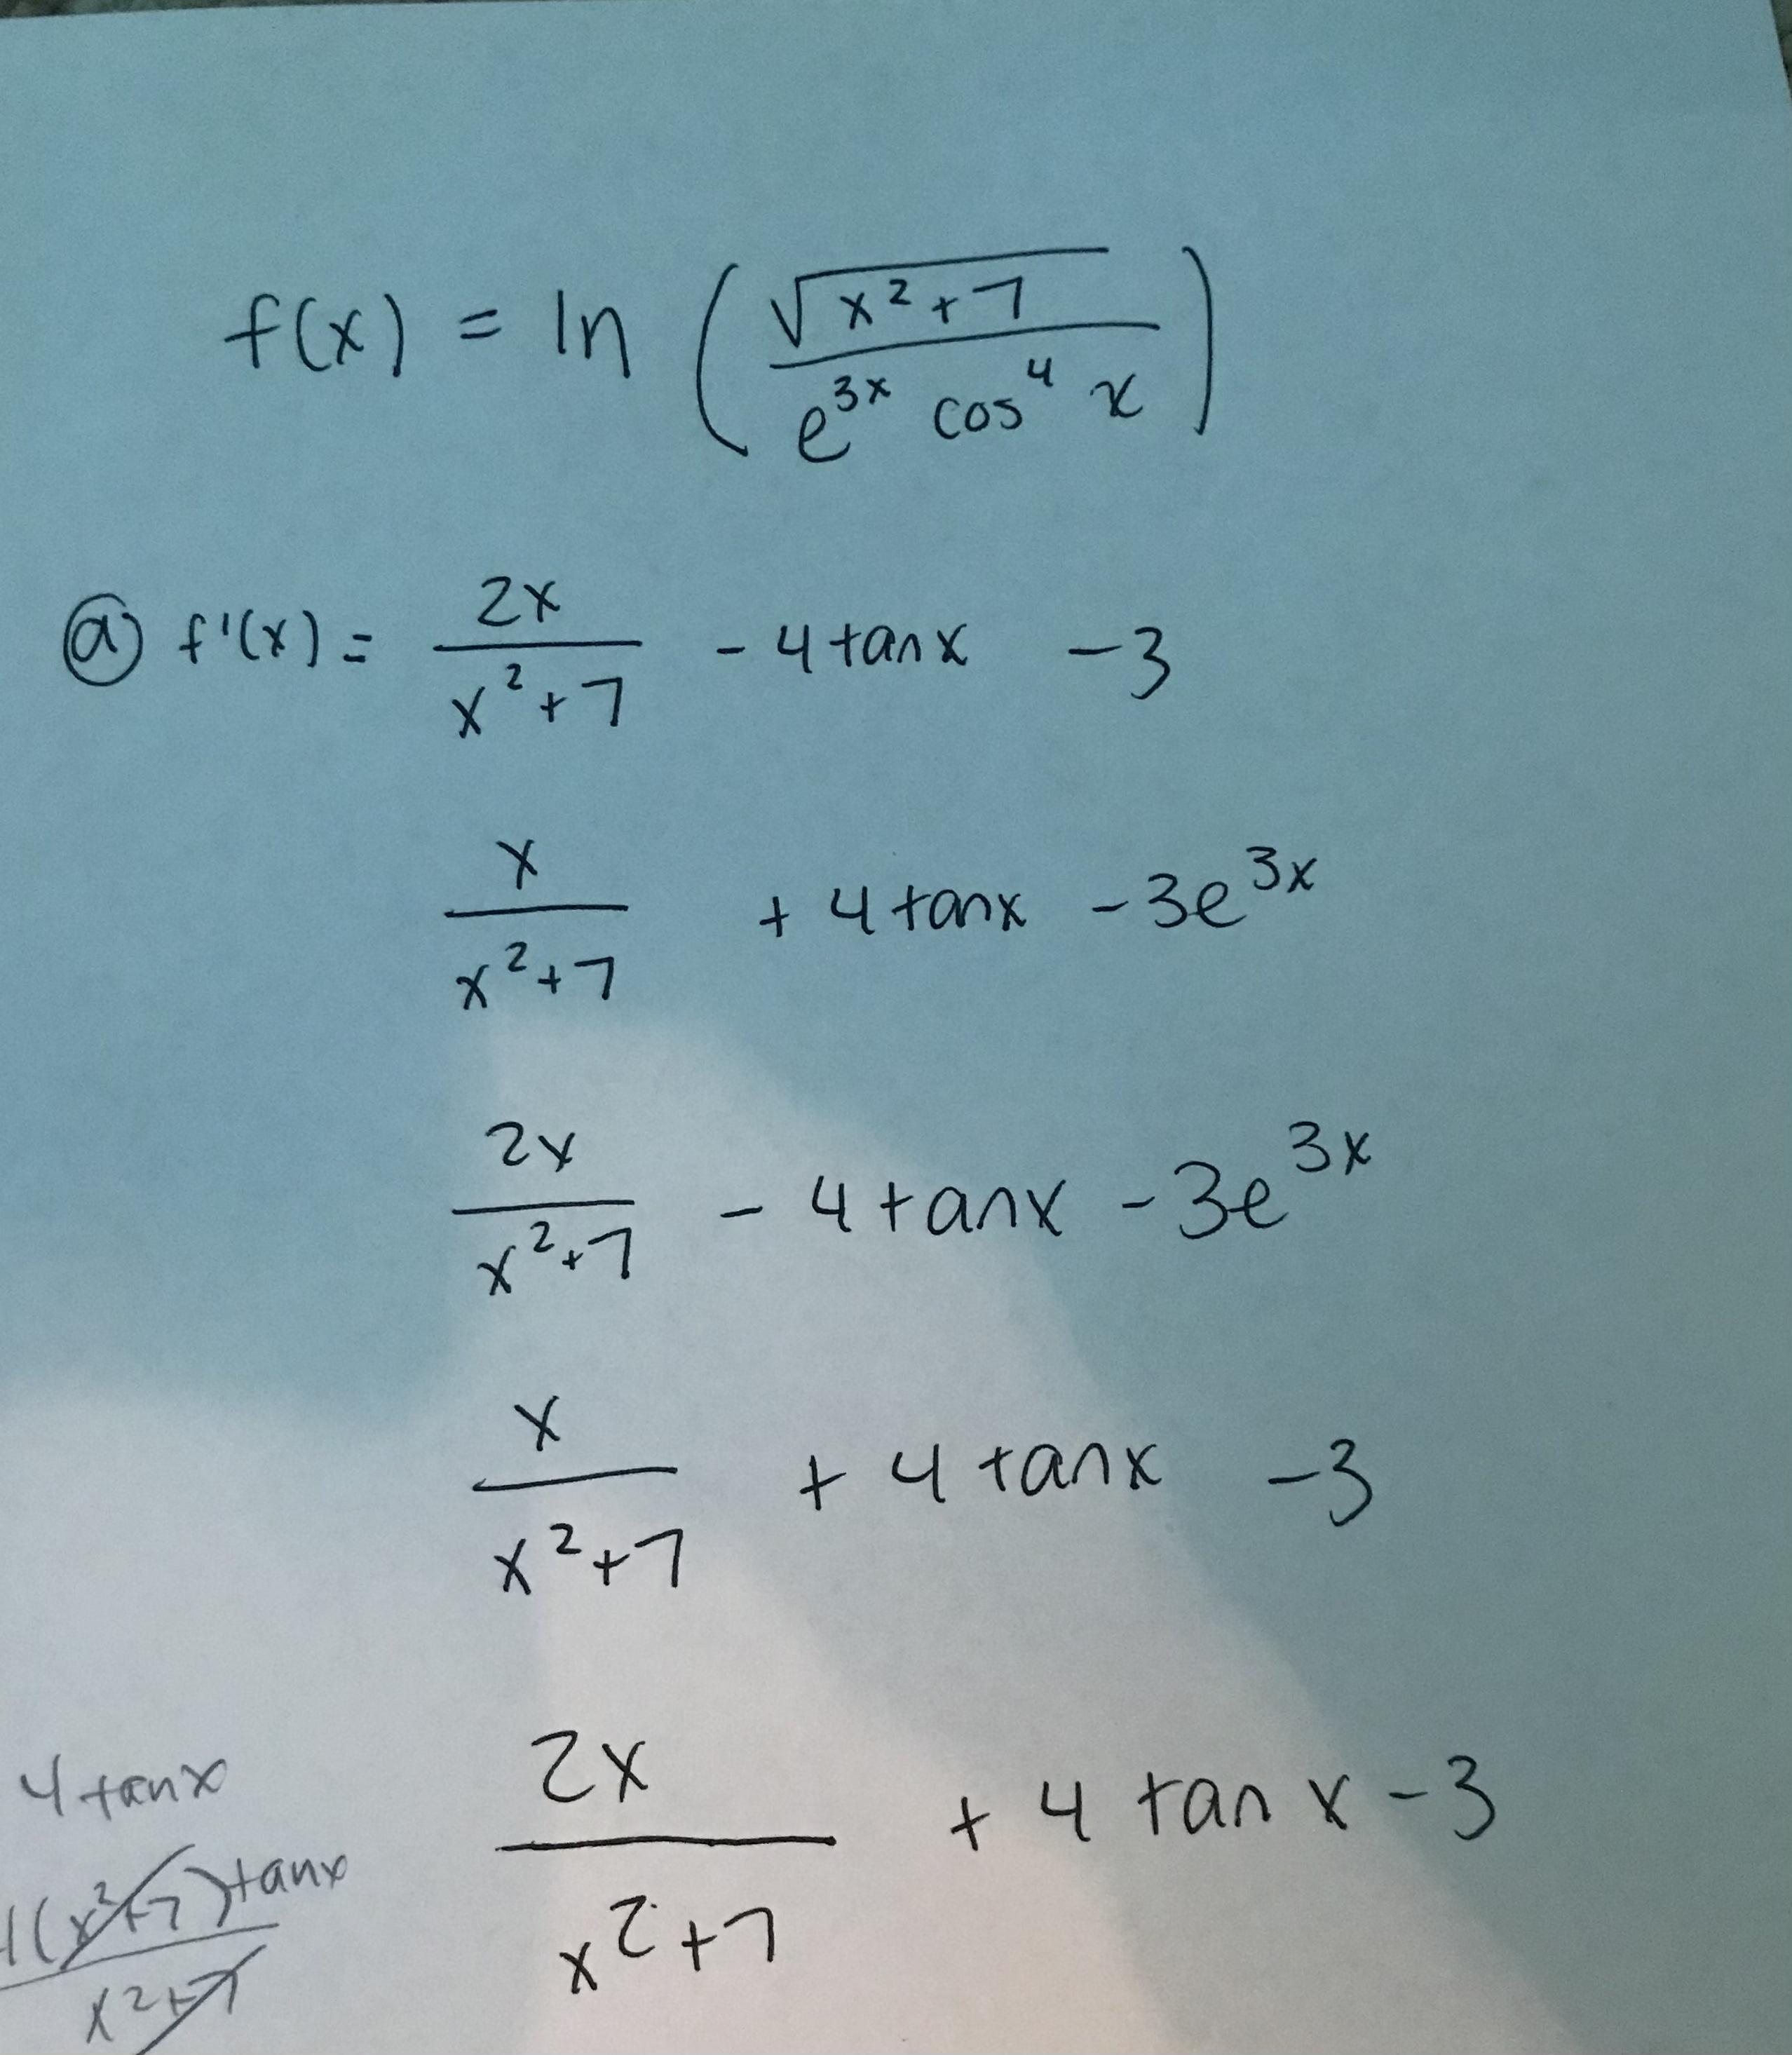 f(x) = ln ( √(x²+7) / (e^{3x} cos⁴ x) )
ⓐ f'(x) = 2x / (x²+7) - 4 tanx - 3
x / (x²+7) + 4 tanx - 3e^{3x}
2x / (x²+7) - 4 tanx - 3e^{3x}
x / (x²+7) + 4 tanx - 3
2x / (x²+7) + 4 tan x - 3
4 tanx
(x²+7) tanx / x²+7